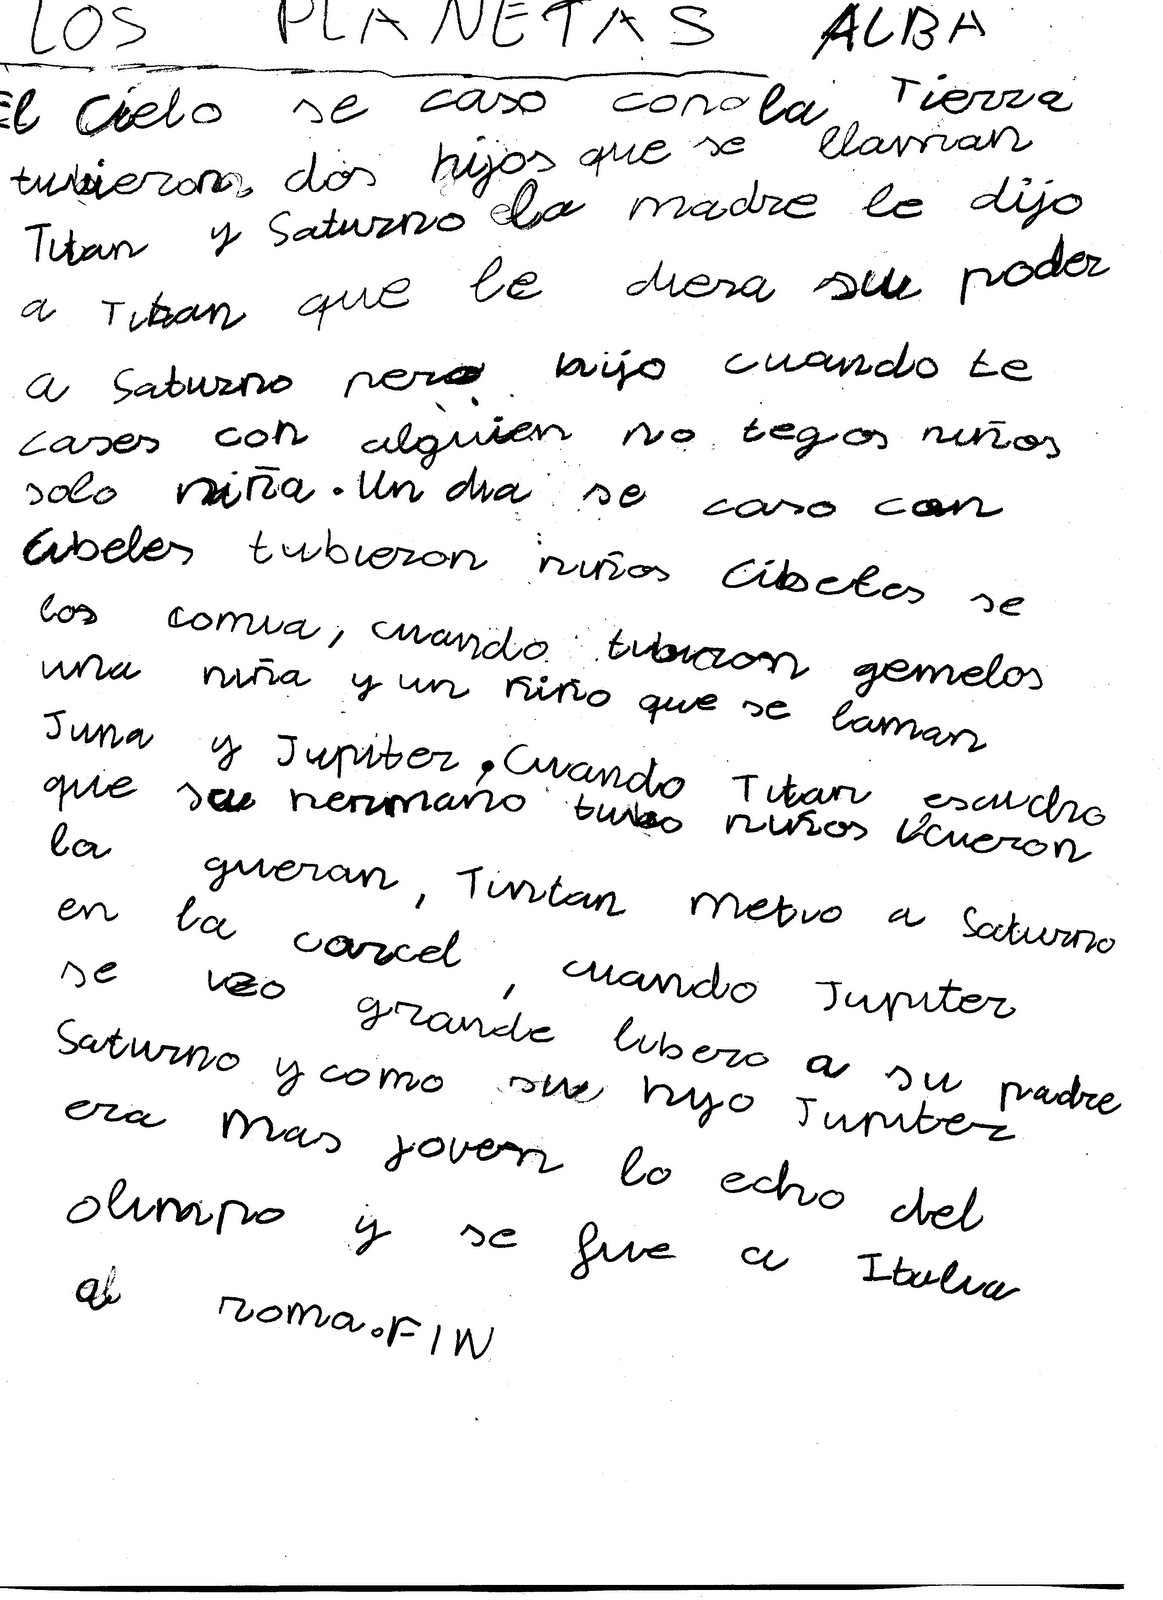 LOS PLANETAS ALBA
El Cielo se caso con la Tierra
tubieron dos hijos que se llaman
Titan y Saturno la madre le dijo
a Titan que le diera su poder
a Saturno pero hijo cuando te
cases con alguien no tegas niños
solo niña. Un dia se caso con
Cibeles tubieron niños Cibeles se
los comia, cuando tubieron gemelos
una niña y un niño que se laman
Juna y Jupiter. Cuando Titan escucho
que su hermano tubo niños icueron
la gueran, Tintan metio a Saturno
en la carcel, cuando Jupiter
se izo grande libero a su padre
Saturno y como su hijo Jupiter
era mas joven lo echo del
olimpo y se fue a Italia
al roma. FIN